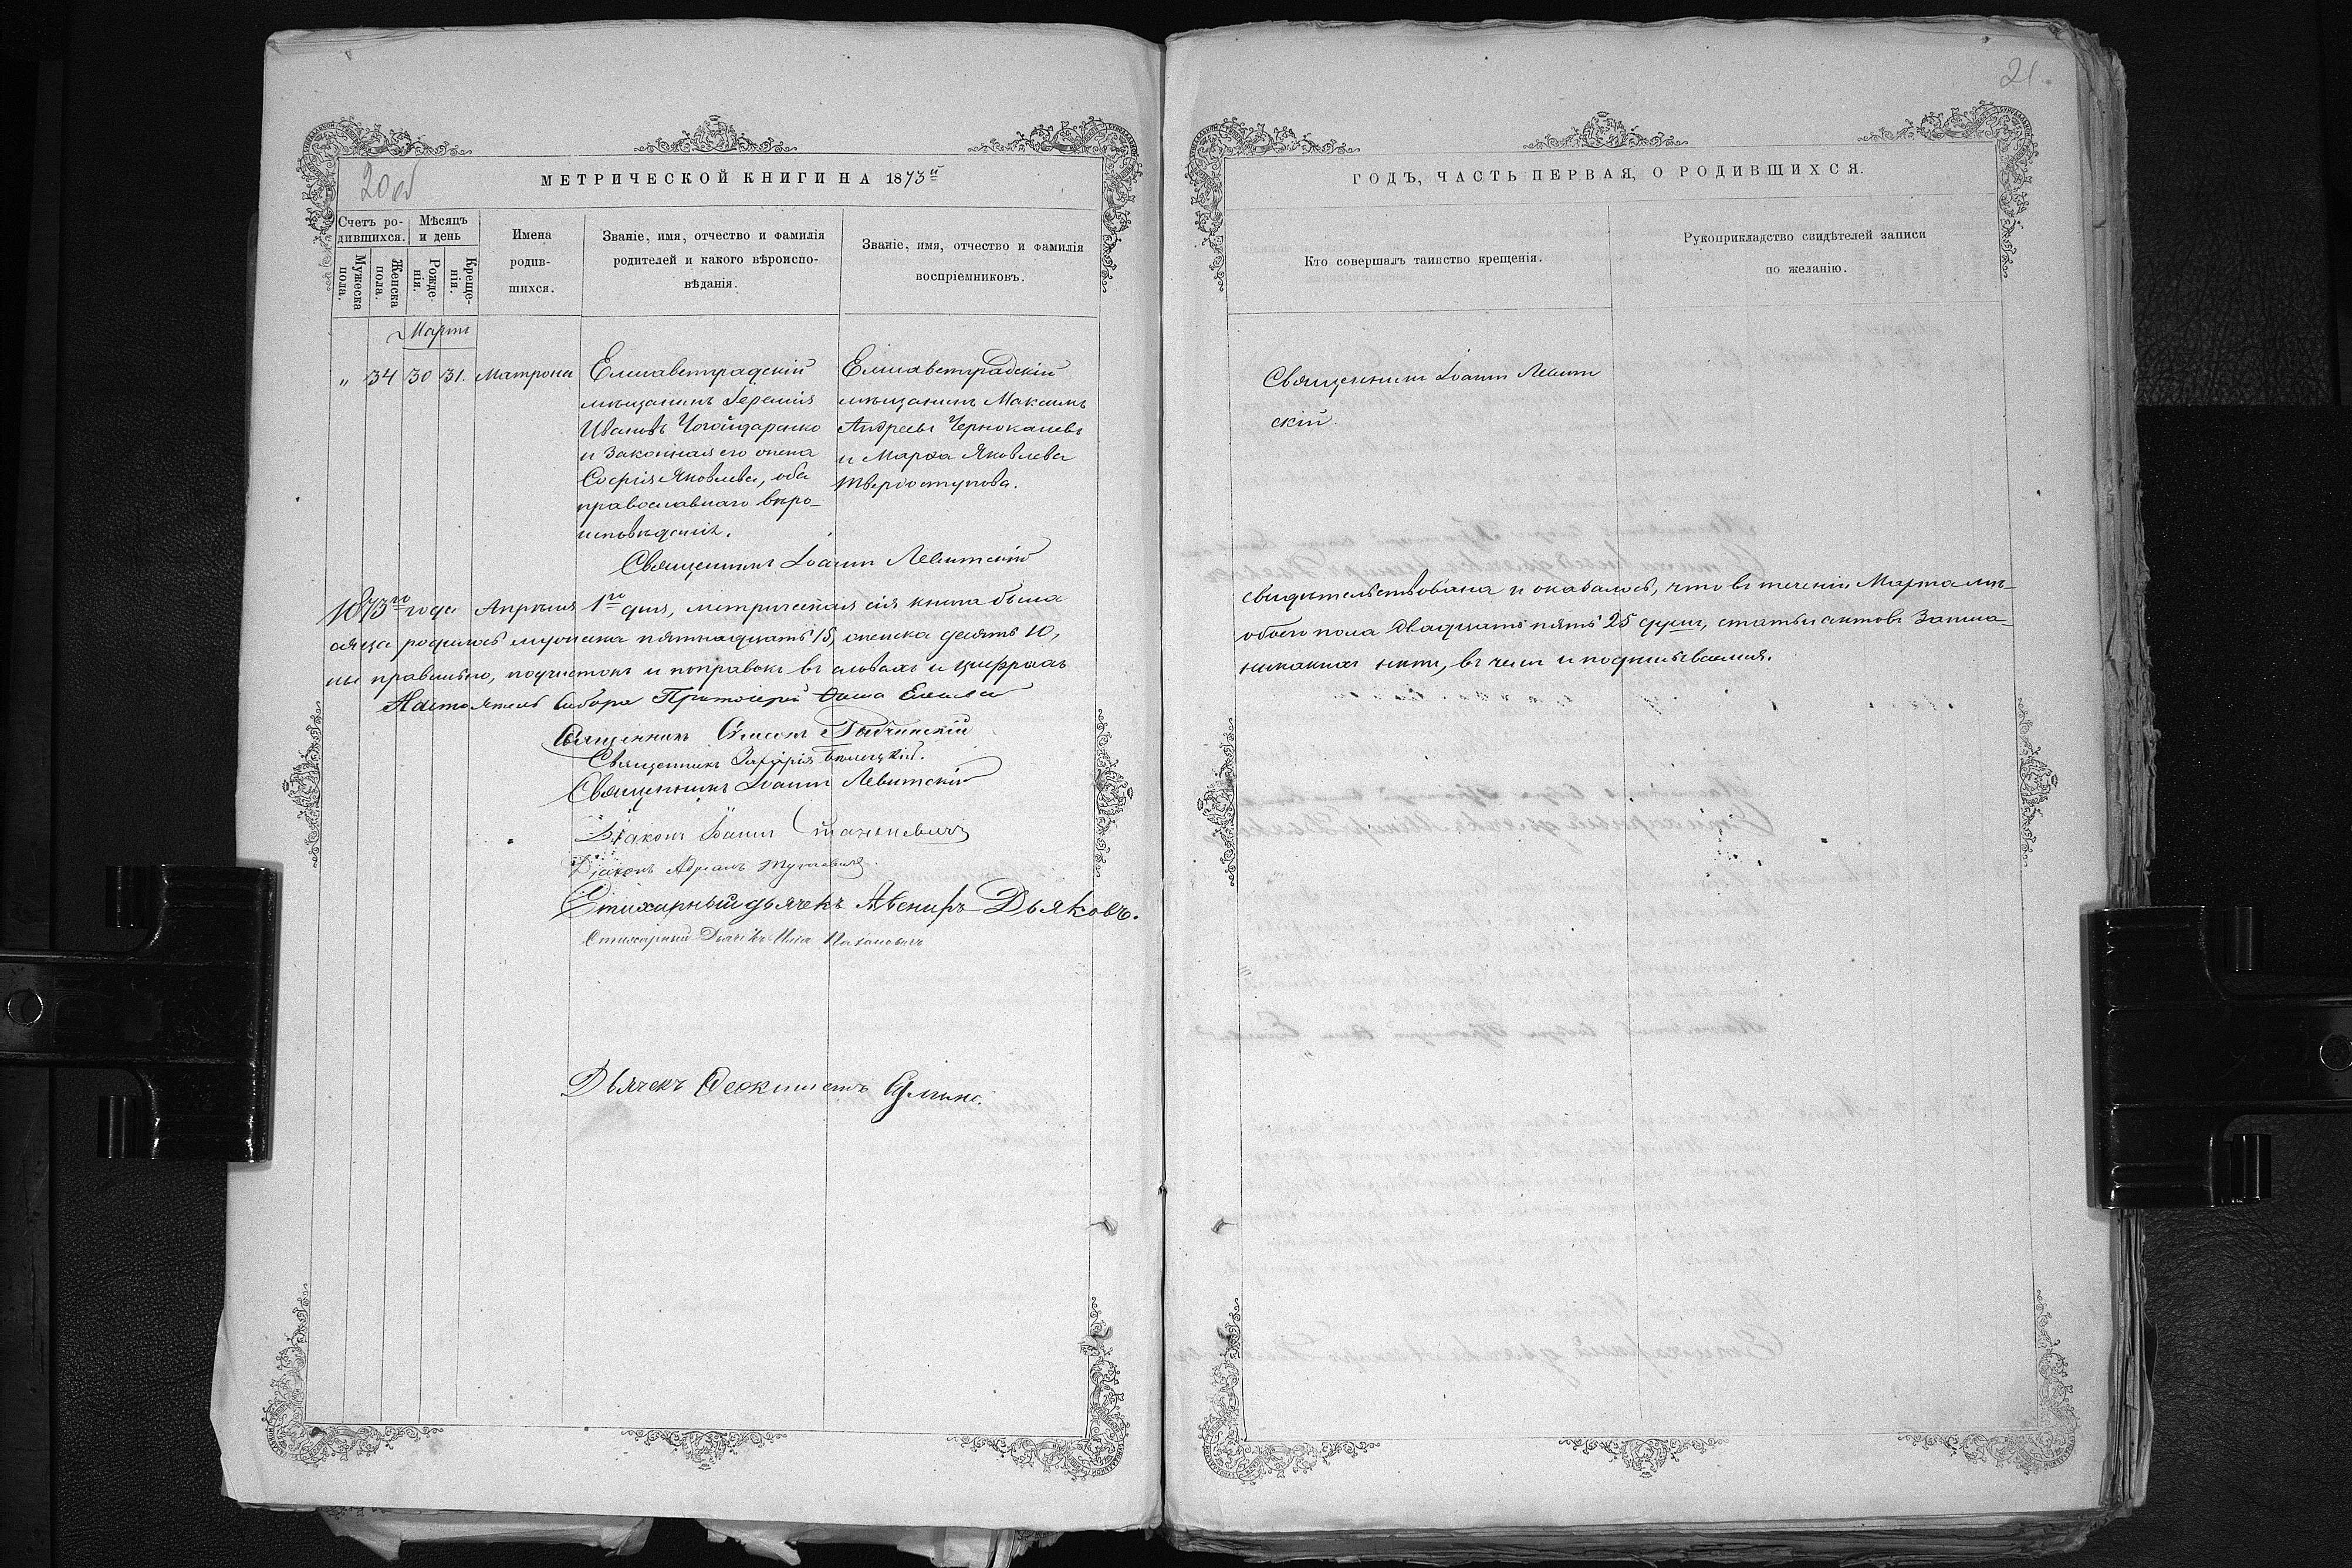 20 об
МЕТРИЧЕСКОЙ КНИГИ НА 1873й
Счетъ ро-
дившихся.
Мѣсяцъ
и день
Мужеска
пола.
Женска
пола.
Рожде-
нія.
Креще-
нія.
Имена
родив-
шихся.
Званіе, имя, отчество и фамилія
родителей и какого вѣроиспо-
вѣданія.
Званіе, имя, отчество и фамилія
воспріемниковъ.
Мартъ
„ 34 30 31. Матрона
Елисаветградскій
мѣщанинъ Іеремія
Ивановъ
и законная его жена
Софія Яковлева, оба
православнаго вѣро-
исповѣданія.
Елисаветградскій
мѣщанинъ Максимъ
Андреевъ
и Марѳа Яковлева
Твердоступова.
Священникъ Іоаннъ Левитскій
1873го года Апрѣля 1го дня, метрическая сія книга была
сяца родилось мужеска пятнадцать 15, женска десять 10,
ны правильно, подчистокъ и поправокъ въ словахъ и цифрахъ
Настоятель Собора Протоіерей
Священникъ
Священникъ Захарія
Священникъ Іоаннъ Левитскій
Діаконъ Іоаннъ Станкевичъ
Діаконъ Адріанъ
Стихарный дьячекъ Авениръ Дьяковъ.
Стихарный Дьячекъ
Дьячекъ Ѳеоктистъ
21.
ГОДЪ, ЧАСТЬ ПЕРВАЯ, О РОДИВШИХСЯ.
Кто совершалъ таинство крещенія.
Рукоприкладство свидѣтелей записи
по желанію.
Священникъ Іоаннъ Левит
скій.
свидѣтельствована и оказалось, что въ теченіи Марта мѣ-
обоего пола двадцать пять 25 душъ, статьи актовъ записа-
никакихъ нѣтъ, въ чемъ и подписываемся.